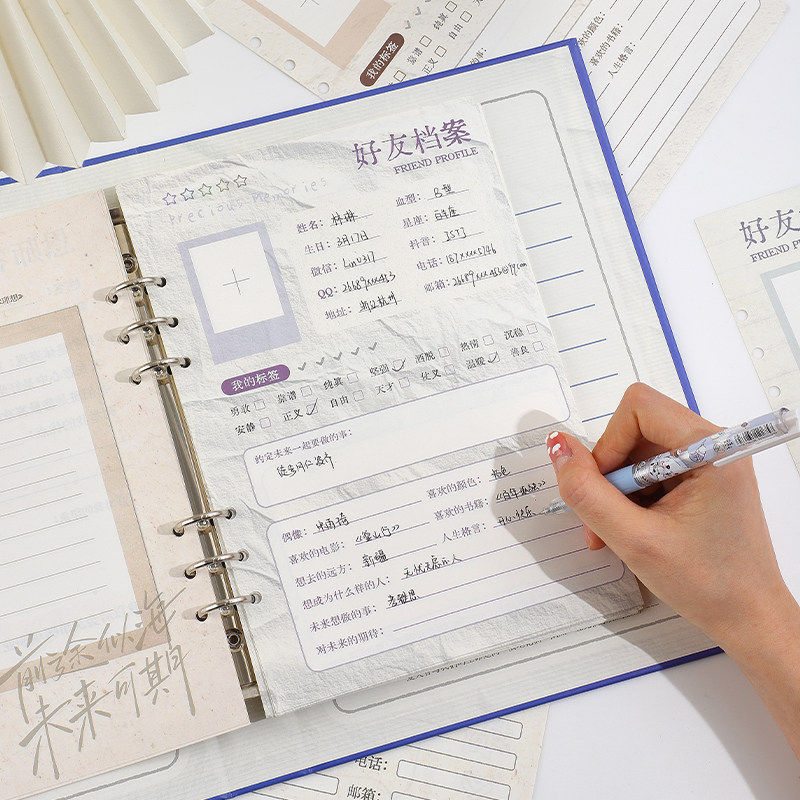 好友档案
FRIEND PROFILE
Precious Memories
姓名：林琳
血型：B型
生日：3月17日
星座：白羊座
微信：Linv317
抖音：ISTJ
QQ：26689xxx463
电话：157xxxx5746
地址：浙江杭州
邮箱：
我的标签
勇敢 靠谱 纯真 坚强 洒脱 热情 沉稳
安静 正义 自由 天才 仗义 温暖 善良
约定未来一起要做的事：
偶像：
喜欢的颜色：
喜欢的电影：
喜欢的书籍：《百年孤独》
想去的远方：新疆
人生格言：开心快乐
想成为什么样的人：无忧无虑的人
未来想做的事：考雅思
对未来的期待：
前途似海
未来可期
我的标签
靠谱 纯真
正义 自由
喜欢的颜色：
喜欢的书籍：
人生格言：
好友
FRIEND PROFILE
电话：
邮箱：